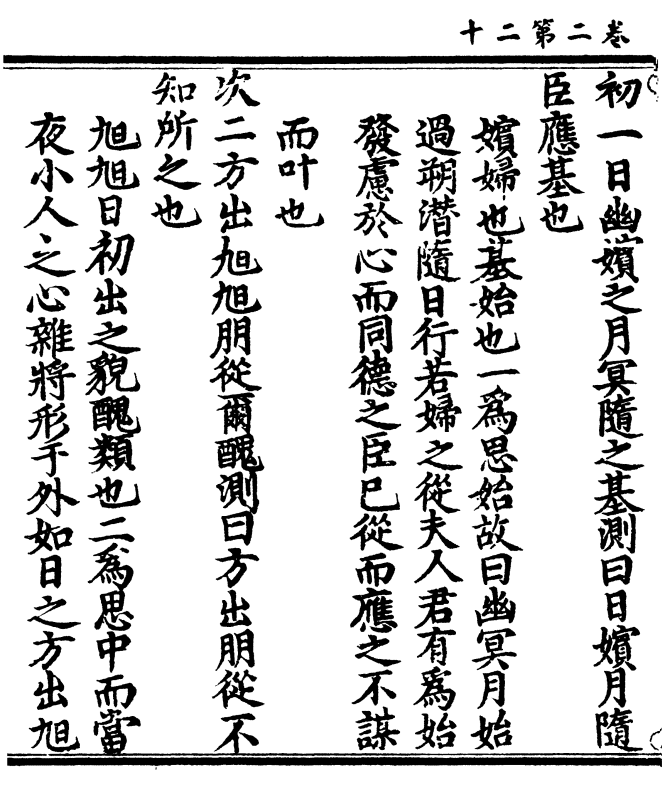 卷二第二十
初一日幽嬪之月冥隨之基測曰日嬪月隨
臣應基也
嬪婦也基始也一爲思始故曰幽冥月始
過朔潛隨日行若婦之從夫人君有爲始
發慮於心而同德之臣已從而應之不謀
而叶也
次二方出旭旭朋從爾醜測曰方出朋從不
知所之也
旭旭日初出之貌醜類也二爲思中而當
夜小人之心雜將形于外如日之方出旭